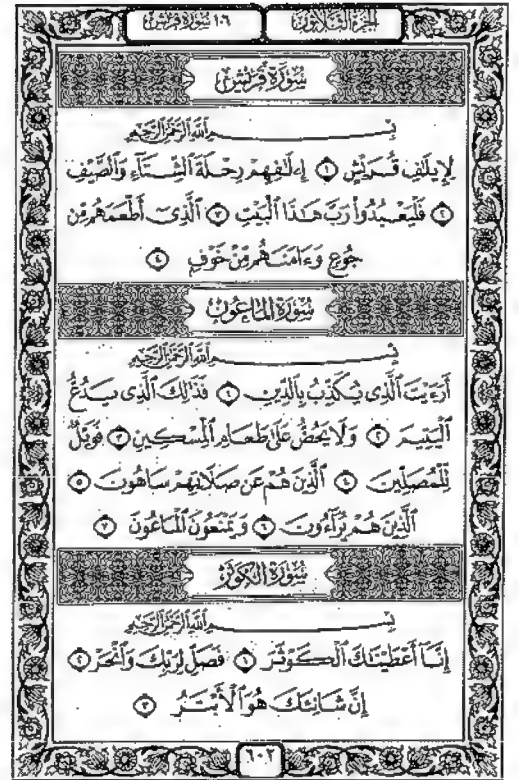 الجزء الثلاثون
١٠٦ سورة قريش
سُورَةُ قُرَيْشٍ
بِسْمِ اللَّهِ الرَّحْمَٰنِ الرَّحِيمِ
لِإِيلَافِ قُرَيْشٍ ١ إِۦلَافِهِمْ رِحْلَةَ الشِّتَاءِ وَالصَّيْفِ
٢ فَلْيَعْبُدُوا رَبَّ هَٰذَا الْبَيْتِ ٣ الَّذِي أَطْعَمَهُم مِّن
جُوعٍ وَءَامَنَهُم مِّنْ خَوْفٍ ٤
سُورَةُ الْمَاعُونِ
بِسْمِ اللَّهِ الرَّحْمَٰنِ الرَّحِيمِ
أَرَءَيْتَ الَّذِي يُكَذِّبُ بِالدِّينِ ١ فَذَٰلِكَ الَّذِي يَدُعُّ
الْيَتِيمَ ٢ وَلَا يَحُضُّ عَلَىٰ طَعَامِ الْمِسْكِينِ ٣ فَوَيْلٌ
لِّلْمُصَلِّينَ ٤ الَّذِينَ هُمْ عَن صَلَاتِهِمْ سَاهُونَ ٥
الَّذِينَ هُمْ يُرَاءُونَ ٦ وَيَمْنَعُونَ الْمَاعُونَ ٧
سُورَةُ الْكَوْثَرِ
بِسْمِ اللَّهِ الرَّحْمَٰنِ الرَّحِيمِ
إِنَّا أَعْطَيْنَاكَ الْكَوْثَرَ ١ فَصَلِّ لِرَبِّكَ وَانْحَرْ ٢
إِنَّ شَانِئَكَ هُوَ الْأَبْتَرُ ٣
٦٠٢